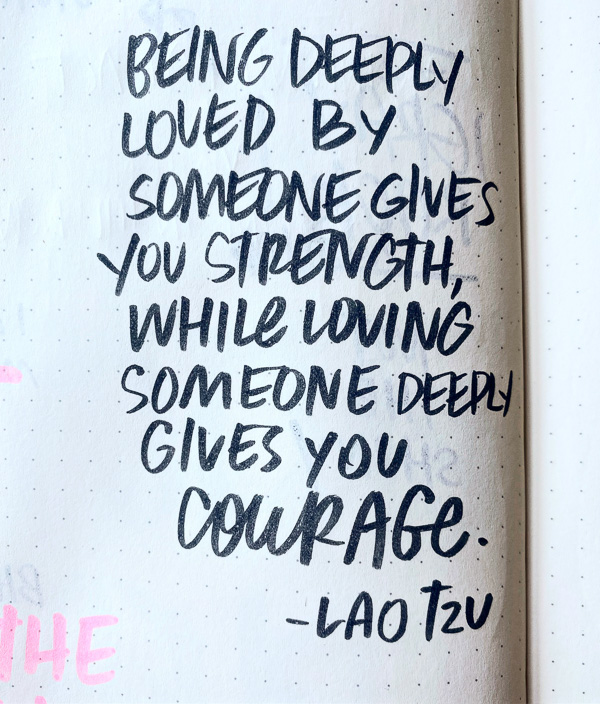 BEING DEEPLY
LOVED BY
SOMEONE GIVES
YOU STRENGTH,
WHILe LOVING
SOMEONE DEEPLY
GIVES YOU
COURAGe.
-LAO TZU
THE